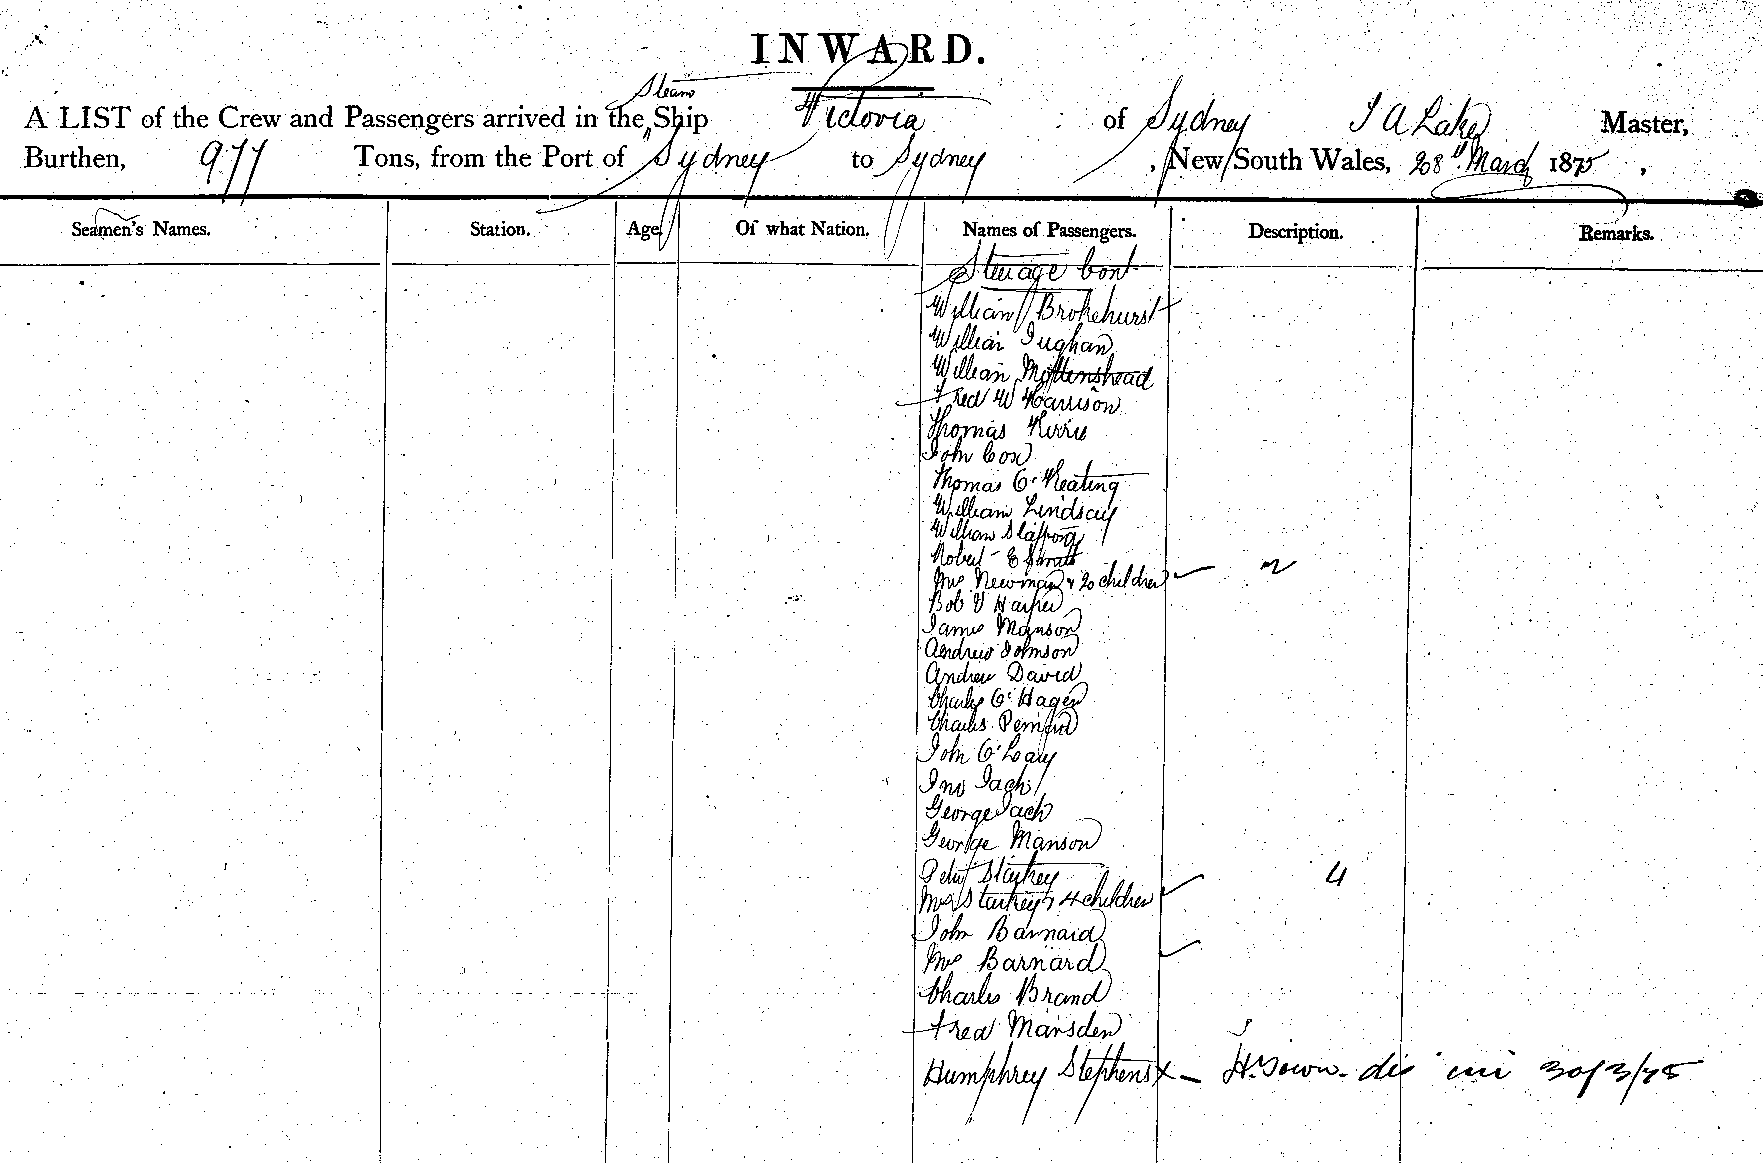 INWARD.
Steam
A LIST of the Crew and Passengers arrived in the Ship Victoria of Sydney J A Lake Master,
Burthen, 977 Tons, from the Port of Sydney to Sydney, New South Wales, 28th March 1875,
Seamen's Names. Station. Age Of what Nation. Names of Passengers. Description. Remarks.
Steerage Cont
William Brokehurst
William
William
Fred W Harrison
Thomas
John Cox
Thomas O'Keating
William Lindsay
William
Robert E
Mrs Newman & 2 children 2
Bob Harper
James Manson
Andrew Johnson
Andrew David
Charles O'Hagen
Charles
John O'Leary
Jno Jack
George Jack
George Manson
Peter Starkey
Mrs Starkey & 4 children 4
John Barnard
Mrs Barnard
Charles Brand
Fred Marsden
Humphrey Stephens x - 30/3/75